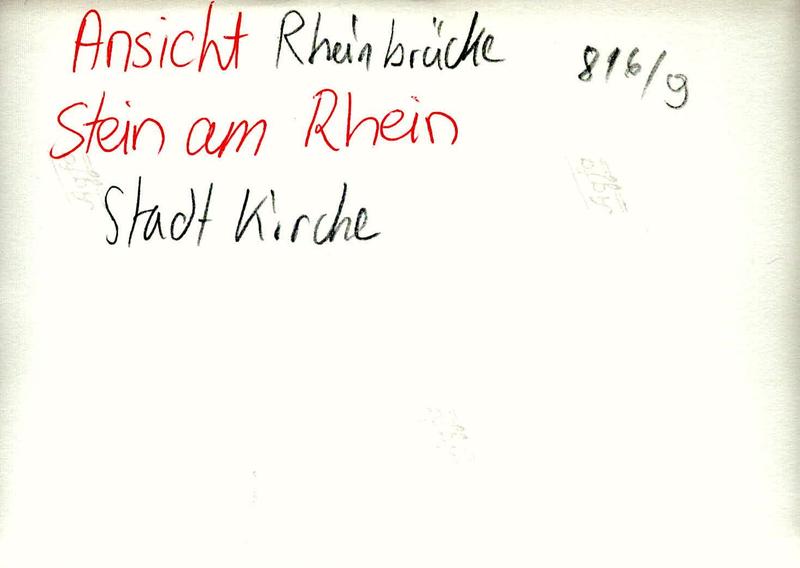 Ansicht Rheinbrücke 816/9
Stein am Rhein
Stadt Kirche